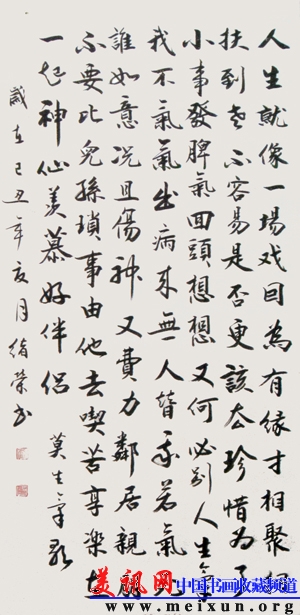 人生就像一場戏因為有緣才相聚相
扶到老不容易是否更該去珍惜為了
小事發脾氣回頭想想又何必别人生氣
我不氣氣出病来無人替我若氣死
誰如意况且傷神又費力鄰居親朋
不要比兒孫瑣事由他去喫苦享樂在
一起神仙羡慕好伴侣 莫生氣歌
歲在己丑年亥月绪榮书
美讯网
中国书画收藏频道
www.meixun.org